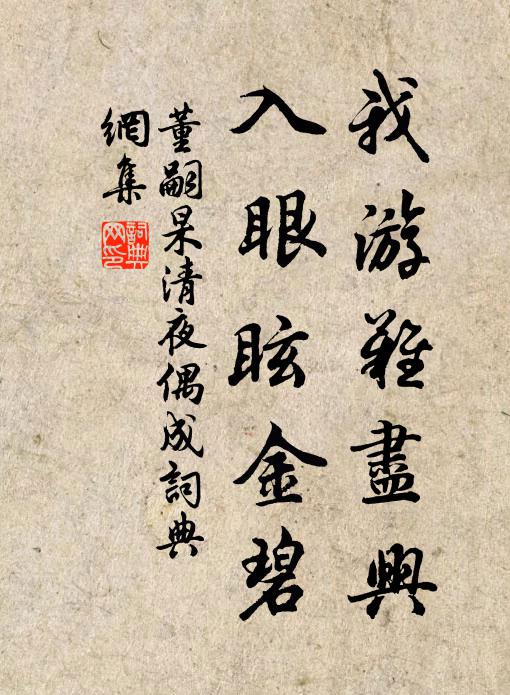 我游難盡興
入眼眩金碧
董嗣杲清夜偶成詞典
網集
詞典
网印